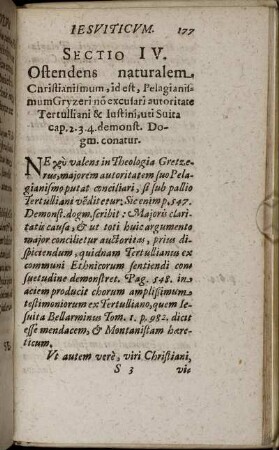 IESVITICVM. 177
SECTIO IV.
Ostendens naturalem
Christianismum, id est, Pelagianis-
mum Gryzeri nõ excusari autoritate
Tertulliani & Iustini, uti Suita
cap. 2. 3. 4. demonst. Do-
gm. conatur.
NE valens in Theologia Gretze-
rus, majorem autoritatem suo Pela-
gianismo putat conciliari, si sub pallio
Tertulliani vẽditetur: Sic enim p. 547.
Demonst. dogm. scribit: Majoris clari-
tatis causa, & ut toti huic argumento
major concilietur auctoritas, prius di-
spiciendum, quidnam Tertullianus ex
communi Ethnicorum sentiendi con-
suetudine demonstret. Pag. 548. in
aciem producit chorum amplissimum
testimoniorum ex Tertulliano, quem Ie-
suita Bellarminus Tom. 1. p. 982. dicit
esse mendacem, & Montanistam hære-
ticum.
Ut autem verè, viri Christiani,
S 3 vir